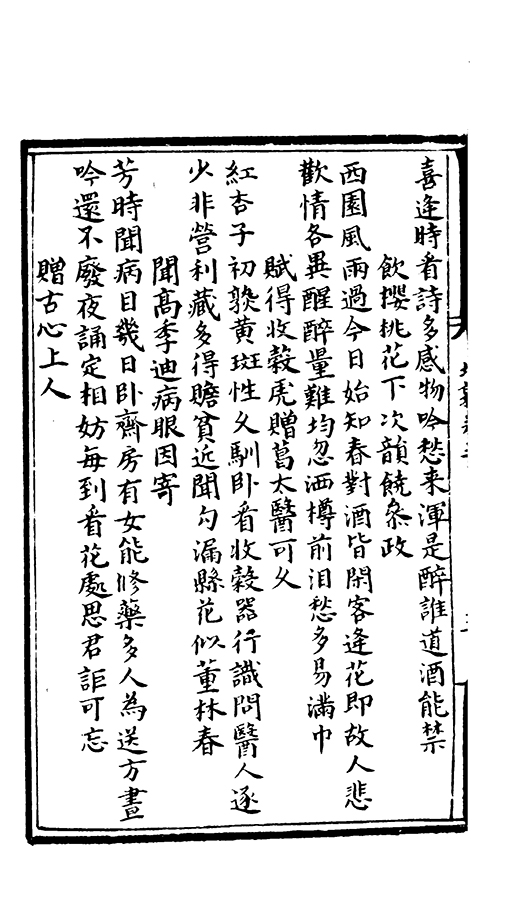 喜逢時看詩多感物吟愁来渾是醉誰道酒能禁
飲櫻桃花下次韻饒叅政
西園風雨過今日始知春對酒皆閑客逢花即故人悲
歡情各異醒醉量難均忽洒樽前泪愁多易滿巾
賦得收穀虎贈葛太醫可久
紅杏子初䓇黄斑性乆馴卧看收穀器行識問醫人逐
少非營利藏多得贍貧近聞勾漏縣花似董林春
聞髙季迪病眼因寄
芳時聞病目幾日卧齋房有女能修藥多人為送方晝
吟還不廢夜誦定相妨每到看花處思君詎可忘
贈古心上人